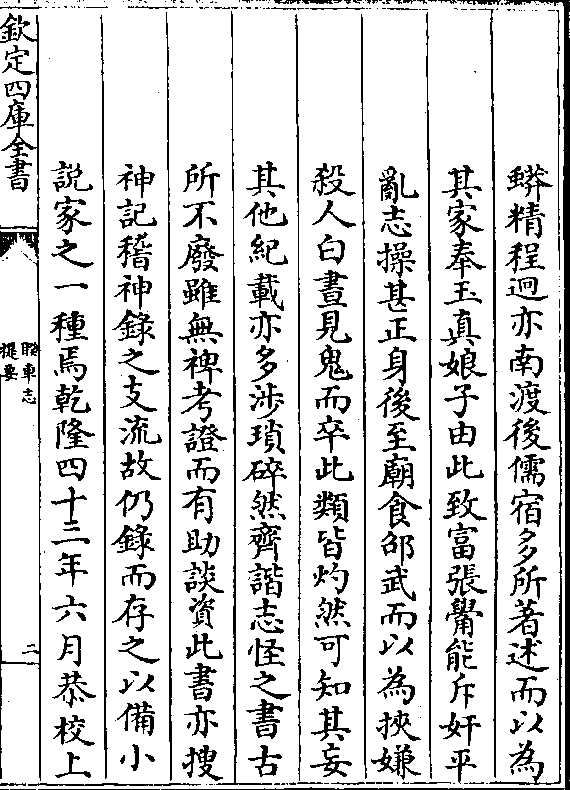 蟒精程迥亦南渡後儒宿多所著述而以為
其家奉玉真娘子由此致富張觷能斥奸平
亂志操甚正身後至廟食邵武而以為挾嫌
殺人白晝見鬼而卒此類皆灼然可知其妄
其他紀載亦多涉瑣碎然齊諧志怪之書古
所不廢雖無裨考證而有助談資此書亦搜
神記稽神錄之支流故仍錄而存之以備小
說家之一種焉乾隆四十三年六月恭校上
欽定四庫全書
睽車志
提要
二